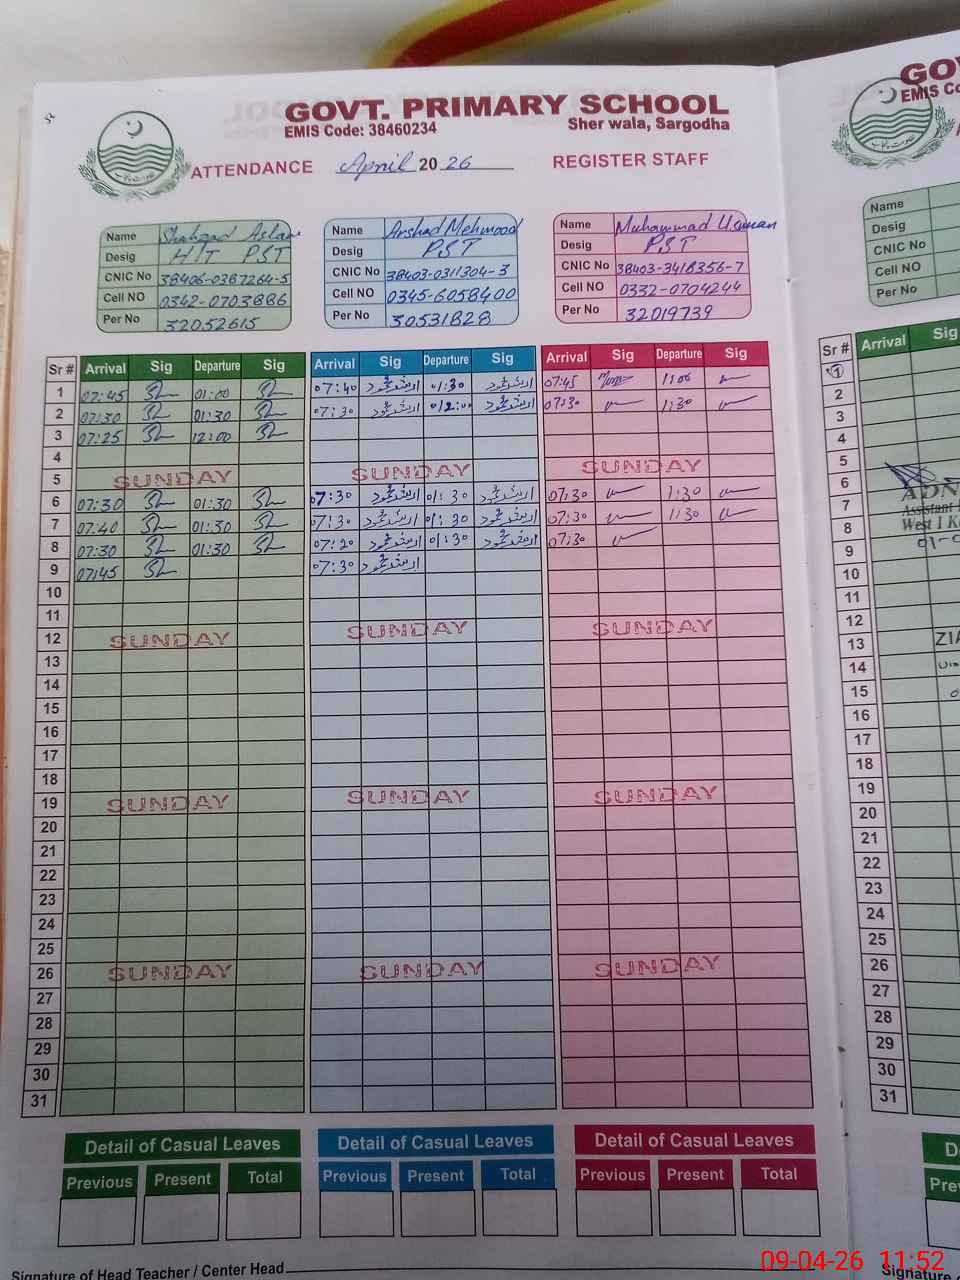 GOVT. PRIMARY SCHOOL
EMIS Code: 38460234 Sher wala, Sargodha
ATTENDANCE April 2026 REGISTER STAFF
Name Shahzad Aslam
Desig H/T PST
CNIC No 38406-0387264-5
Cell NO 0342-0703886
Per No 32052615
Name Arshad Mehmood
Desig PST
CNIC No 38403-0311304-3
Cell NO 0345-6058400
Per No 30531828
Name Muhammad Usman
Desig PST
CNIC No 38403-3418356-7
Cell NO 0332-0704244
Per No 32019739
Sr # Arrival Sig Departure Sig Arrival Sig Departure Sig Arrival Sig Departure Sig
1 07:45 01:00 07:40 ارشد محمود 01:30 ارشد محمود 07:45 11:00
2 07:30 01:30 07:30 ارشد محمود 012:00 ارشد محمود 07:30 1:30
3 07:25 12:00
4
5 SUNDAY SUNDAY SUNDAY
6 07:30 01:30 07:30 ارشد محمود 01:30 ارشد محمود 07:30 1:30
7 07:40 01:30 07:30 ارشد محمود 01:30 ارشد محمود 07:30 1:30
8 07:30 01:30 07:20 ارشد محمود 01:30 ارشد محمود 07:30
9 07:45 07:30 ارشد محمود
10
11
12 SUNDAY SUNDAY SUNDAY
13
14
15
16
17
18
19 SUNDAY SUNDAY SUNDAY
20
21
22
23
24
25
26 SUNDAY SUNDAY SUNDAY
27
28
29
30
31
Detail of Casual Leaves Detail of Casual Leaves Detail of Casual Leaves
Previous Present Total Previous Present Total Previous Present Total
Signature of Head Teacher / Center Head
GOV
EMIS Co
Name
Desig
CNIC No
Cell NO
Per No
Sr # Arrival Sig
1
2
3
4
5
6
7
8
9
10
11
12
13
14
15
16
17
18
19
20
21
22
23
24
25
26
27
28
29
30
31
ADN
Assistant
West 1 K
ZIA
D
Prev
Signature
09-04-26 11:52